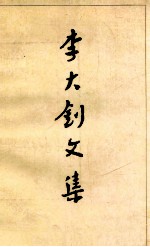 李大釗文集